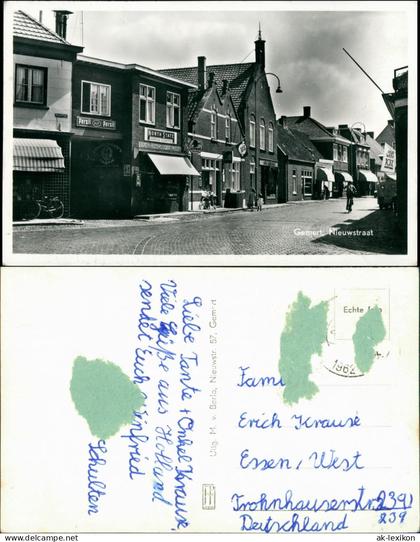 Persil
Persil
NORTH STATE
Gemert, Nieuwstraat
Liebe Tante + Onkel Krause,
Viele Grüße aus Holland
sendet Euch Winfried
Schulten
Uitg. M. v. Berlo, Nieuwstr. 57, Gemert
Echte Fo
1962
Fami
Erich Krause
Essen, West
Frohnhauserstr. 239
239
Deutschland
ak-lexikon.com